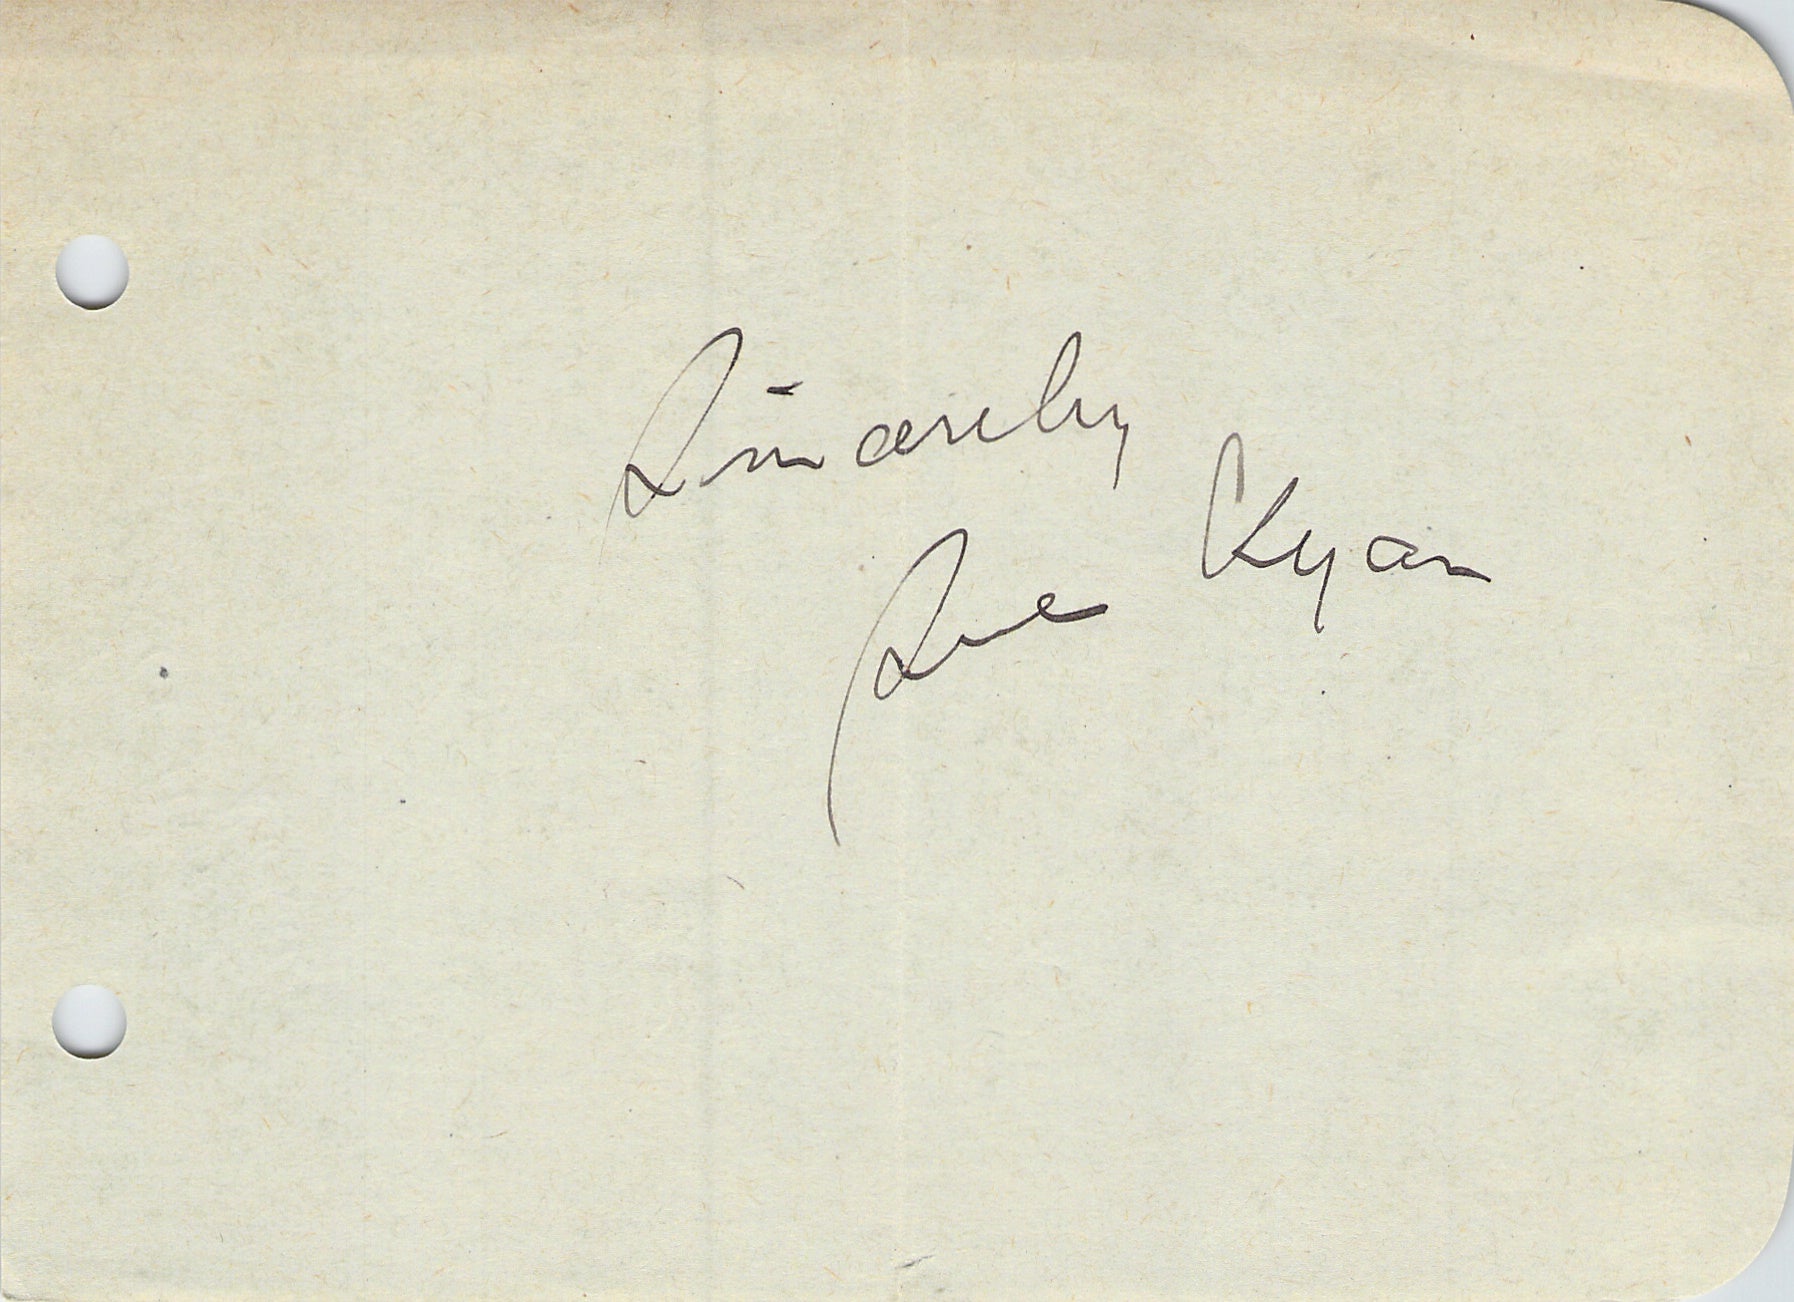 Sincerely
Sue Ryan